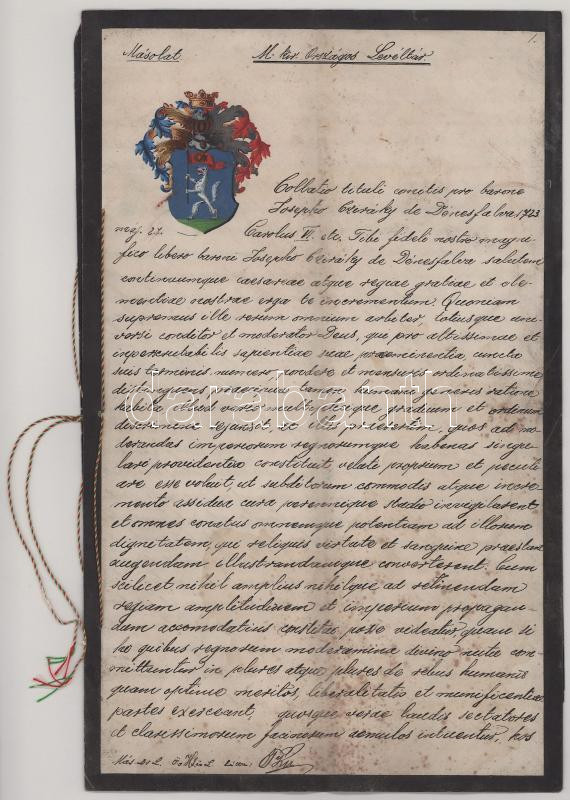 1.
Másolat M. kir. Országos Levéltár.
Collatio tituli comitis pro barone
Josepho Cziráky de Dénesfalva 1723
maj. 27. Carolus VI. etc. Tibi fideli nostro magni-
fico libero baroni Josepho Cziráky de Dénesfalva salutem
continuumque caesareae atque regiae gratiae et cle-
mentiae nostrae erga te incrementum. Quoniam
supremus ille rerum omnium arbiter totiusque uni-
versi conditor et moderator Deus, qui pro altissimae et
inperscrutabilis sapientiae suae praeminentia cuncta
suis terminis numero pondere et mensuris ordinatissime
distinguens maximam tamen humani generis
habita
discrimina eos praesertim, quos ad mo-
derandas imperiorum regnorumque habenas singu-
lari providentia constituit velati proprium et peculi-
are esse voluit, ut subditorum commodis atque incre-
mento assidua cura perennique studio invigilarent
et omnes conatus omnemque potentiam ad illorum
dignitatem, qui reliquis virtute et sanguine praestant
augendam illustrandamque converterent. Cum
scilicet nihil amplius nihilque ad retinendam
regiam amplitudinem et imperium propagan-
dum accomodatius constitui posse videatur, quam si
hi quibus regnorum moderamina divino nutu com-
mittuntur in plures atque plures de rebus humanis
quam optime meritos, liberalitatis et munificentiae
partes exerceant, quosque verae laudis sectatores
et clarissimorum facinorum aemulos intuentur, hos
darabanth